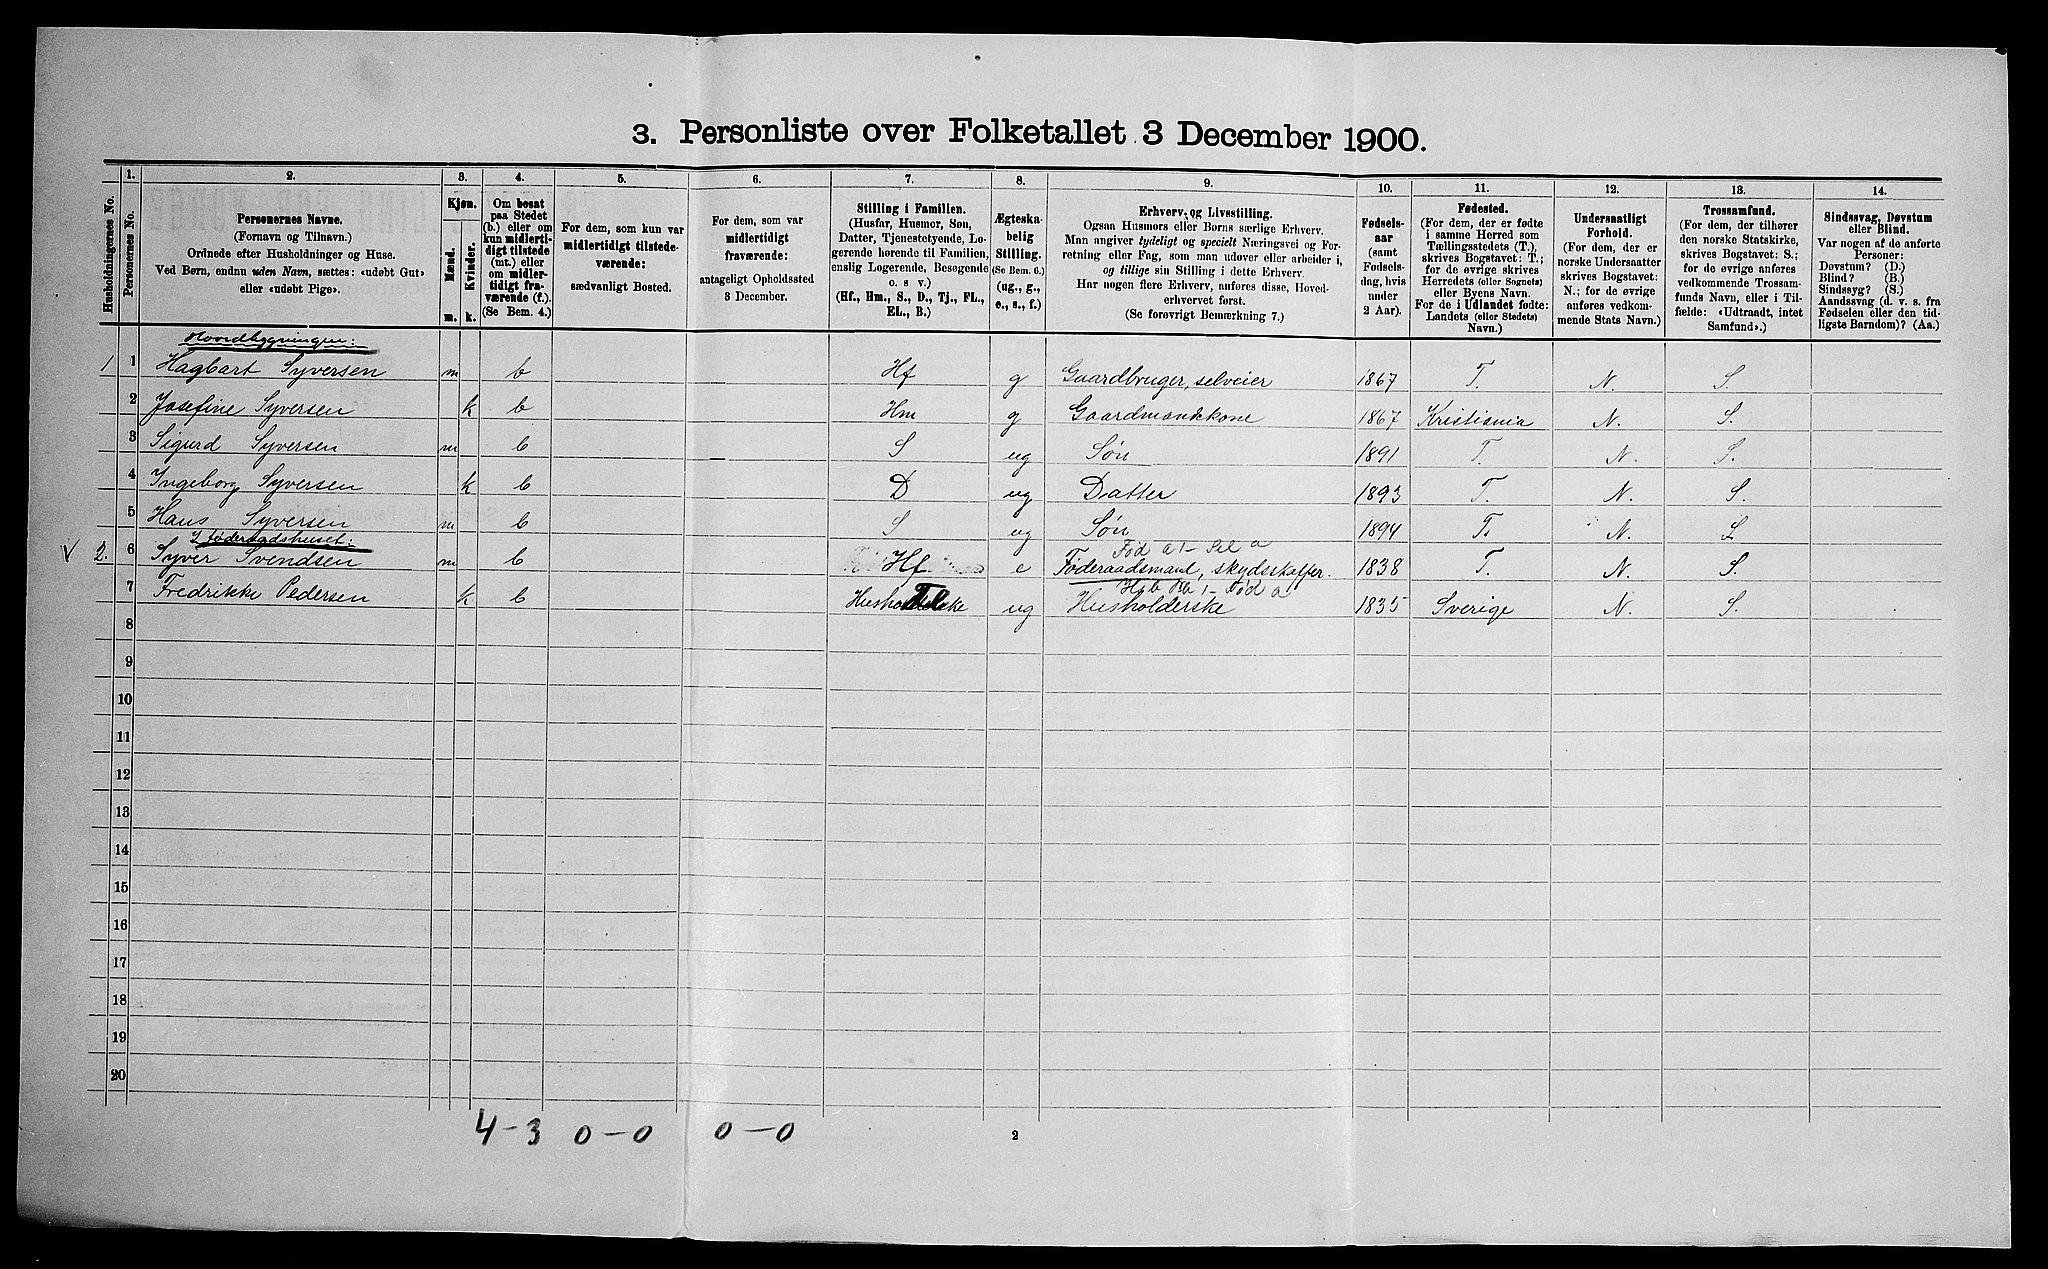 3. Personliste over Folketallet 3 December 1900.
Husholdningernes No.
1.
Personernes No.
2.
Personernes Navne.
(Fornavn og Tilnavn.)
Ordnede efter Husholdninger og Huse.
Ved Børn, endnu uden Navn, sættes: «udøbt Gut»
eller «udøbt Pige».
3.
Kjøn.
Mænd.
Kvinder.
m. k.
4.
Om bosat
paa Stedet
(b.) eller om
kun midlerti-
digt tilstede
(mt.) eller
om midler-
tidigt fra-
værende (f.).
(Se Bem. 4.)
5.
For dem, som kun var
midlertidigt tilstede-
værende:
sædvanligt Bosted.
6.
For dem, som var
midlertidigt
fraværende:
antageligt Opholdssted
3 December.
7.
Stilling i Familien.
(Husfar, Husmor, Søn,
Datter, Tjenestetyende, Lo-
gerende hørende til Familien,
enslig Logerende, Besøgende
o. s v.)
(Hf., Hm., S., D., Tj., FL.,
EL., B.)
8.
Ægteska-
belig
Stilling.
(Se Bem. 6.)
(ug., g.,
e., s., f.)
9.
Erhverv og Livsstilling.
Ogsaa Husmors eller Børns særlige Erhverv.
Man angiver tydeligt og specielt Næringsvei og For-
retning eller Fag, som man udover eller arbeider i,
og tillige sin Stilling i dette Erhverv.
Har nogen flere Erhverv, anføres disse, Hoved-
erhvervet først.
(Se forøvrigt Bemærkning 7.)
10.
Fødsels-
aar
(samt
Fødsels-
dag, hvis
under
2 Aar).
11.
Fødested.
(For dem, der er fødte
i samme Herred som
Tællingsstedets (T.),
skrives Bogstavet: T.;
for de øvrige skrives
Herredets (eller Sognets)
eller Byens Navn.
For de i Udlandet fødte:
Landets (eller Stedets)
Navn.)
12.
Undersaatligt
Forhold.
(For dem, der er
norske Undersaatter
skrives Bogstavet:
N.; for de øvrige
anføres vedkom-
mende Stats Navn.)
13.
Trossamfund.
(For dem, der tilhører
den norske Statskirke,
skrives Bogstavet: S.;
for de øvrige anføres
vedkommende Trossam-
funds Navn, eller i Til-
fælde: «Udtraadt, intet
Samfund».)
14.
Sindssvag, Døvstum
eller Blind.
Var nogen af de anførte
Personer:
Døvstum? (D.)
Blind? (B.)
Sindssyg? (S.)
Aandssvag (d. v. s. fra
Fødselen eller den tid-
ligste Barndom)? (Aa.)
Hovedbygningen:
1 1 Hagbart Syversen m b Hf g Gaardbruger, selveier 1867 T. N. S.
2 Josefine Syversen k b Hm g Gaardmandskone 1867 Kristiania N. S.
3 Sigurd Syversen m b S ug Søn 1891 T. N. S.
4 Ingeborg Syversen k b D ug Datter 1893 T. N. S.
5 Hans Syversen m b S ug Søn 1894 T. N. S
I føderaadshuset:
V 2. 6 Syver Svendsen m b Hf. e Føderaadsmand, skydsskaffer. 1838 T. N. S.
7 Fredrikke Pedersen k b Tel ug Husholderske 1835 Sverige N. S.
8
9
10
11
12
13
14
15
16
17
18
19
20
4-3 0-0 0-0
2